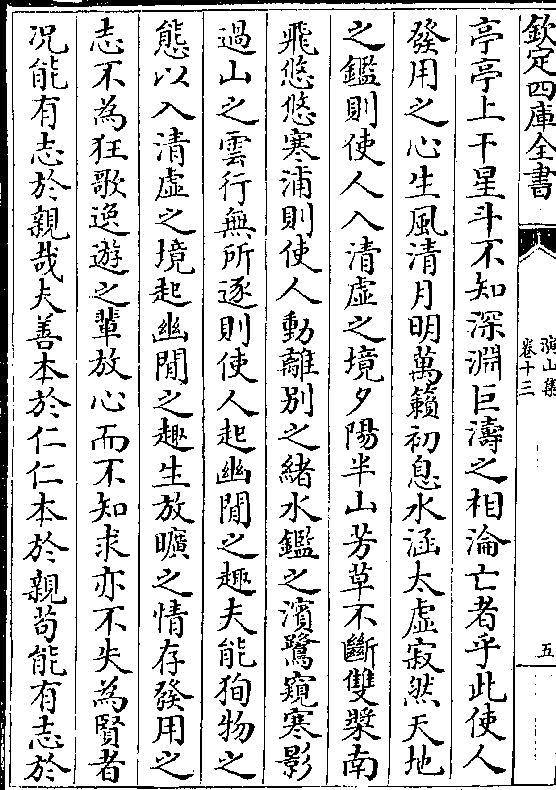 欽定四庫全書
演山集
卷十三
五
亭亭上干星斗不知深淵巨濤之相淪亡者乎此使人
發用之心生風清月明萬籟初息水涵太虛寂然天地
之鑑則使人入清虛之境夕陽半山芳草不斷雙槳南
飛悠悠寒浦則使人動離别之緒水鑑之濱鷺窺寒影
過山之雲行無所逐則使人起幽閒之趣夫能狥物之
態以入清虛之境起幽閒之趣生放曠之情存發用之
志不為狂歌逸遊之輩放心而不知求亦不失為賢者
况能有志於親哉夫善本於仁仁本於親苟能有志於